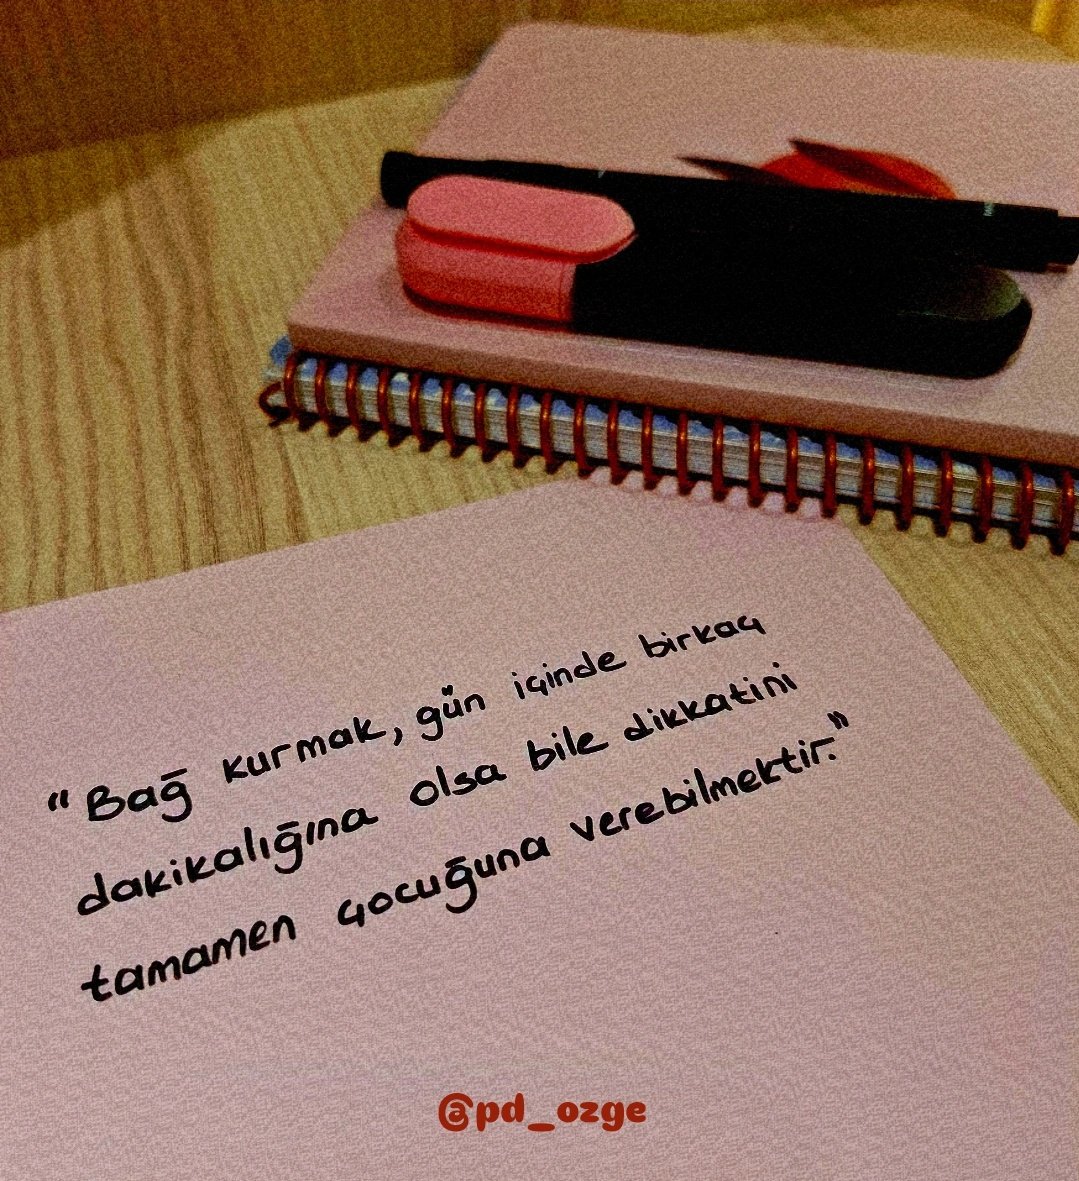 "Bağ kurmak, gün içinde birkaç
dakikalığına olsa bile dikkatini
tamamen çocuğuna verebilmektir."
@pd_ozge